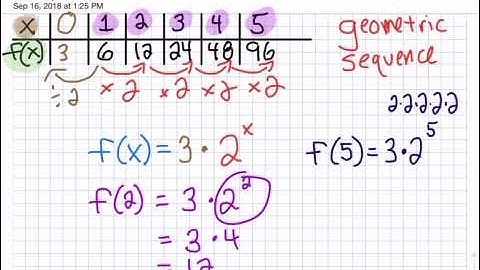 Sep 16, 2018 at 1:25 PM
x 0 1 2 3 4 5
f(x) 3 6 12 24 48 96
÷2 ×2 ×2 ×2 ×2
geometric
sequence
2·2·2·2·2
f(x) = 3 · 2^x
f(5) = 3 · 2^5
f(2) = 3 · 2^2
= 3 · 4
= 12